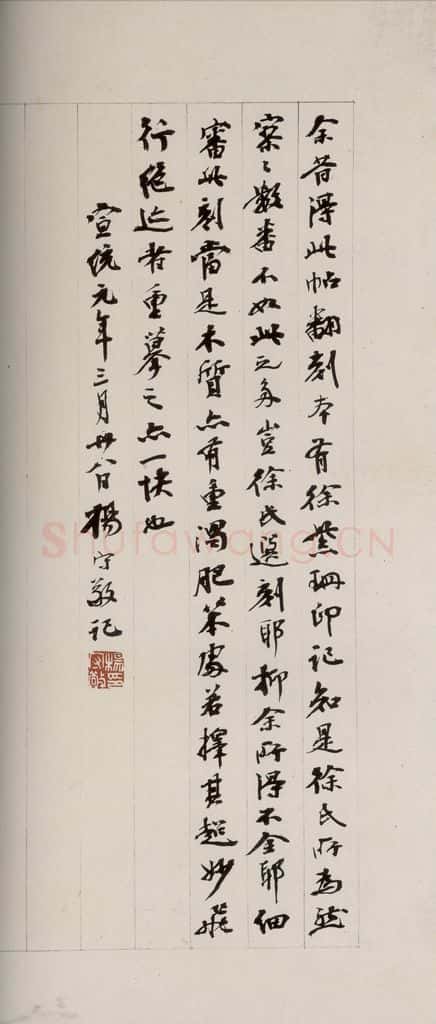 余昔得此帖翻刻本有徐紫珊印記知是徐氏所為然
寥寥數番不如此之多豈徐氏選刻耶抑余所得不全耶細
審此刻當是木質亦有重濁肥笨處若擇其超妙飛
行絕迹者重摹之亦一快也
宣統元年三月廿八日楊守敬記
Shufawang.CN